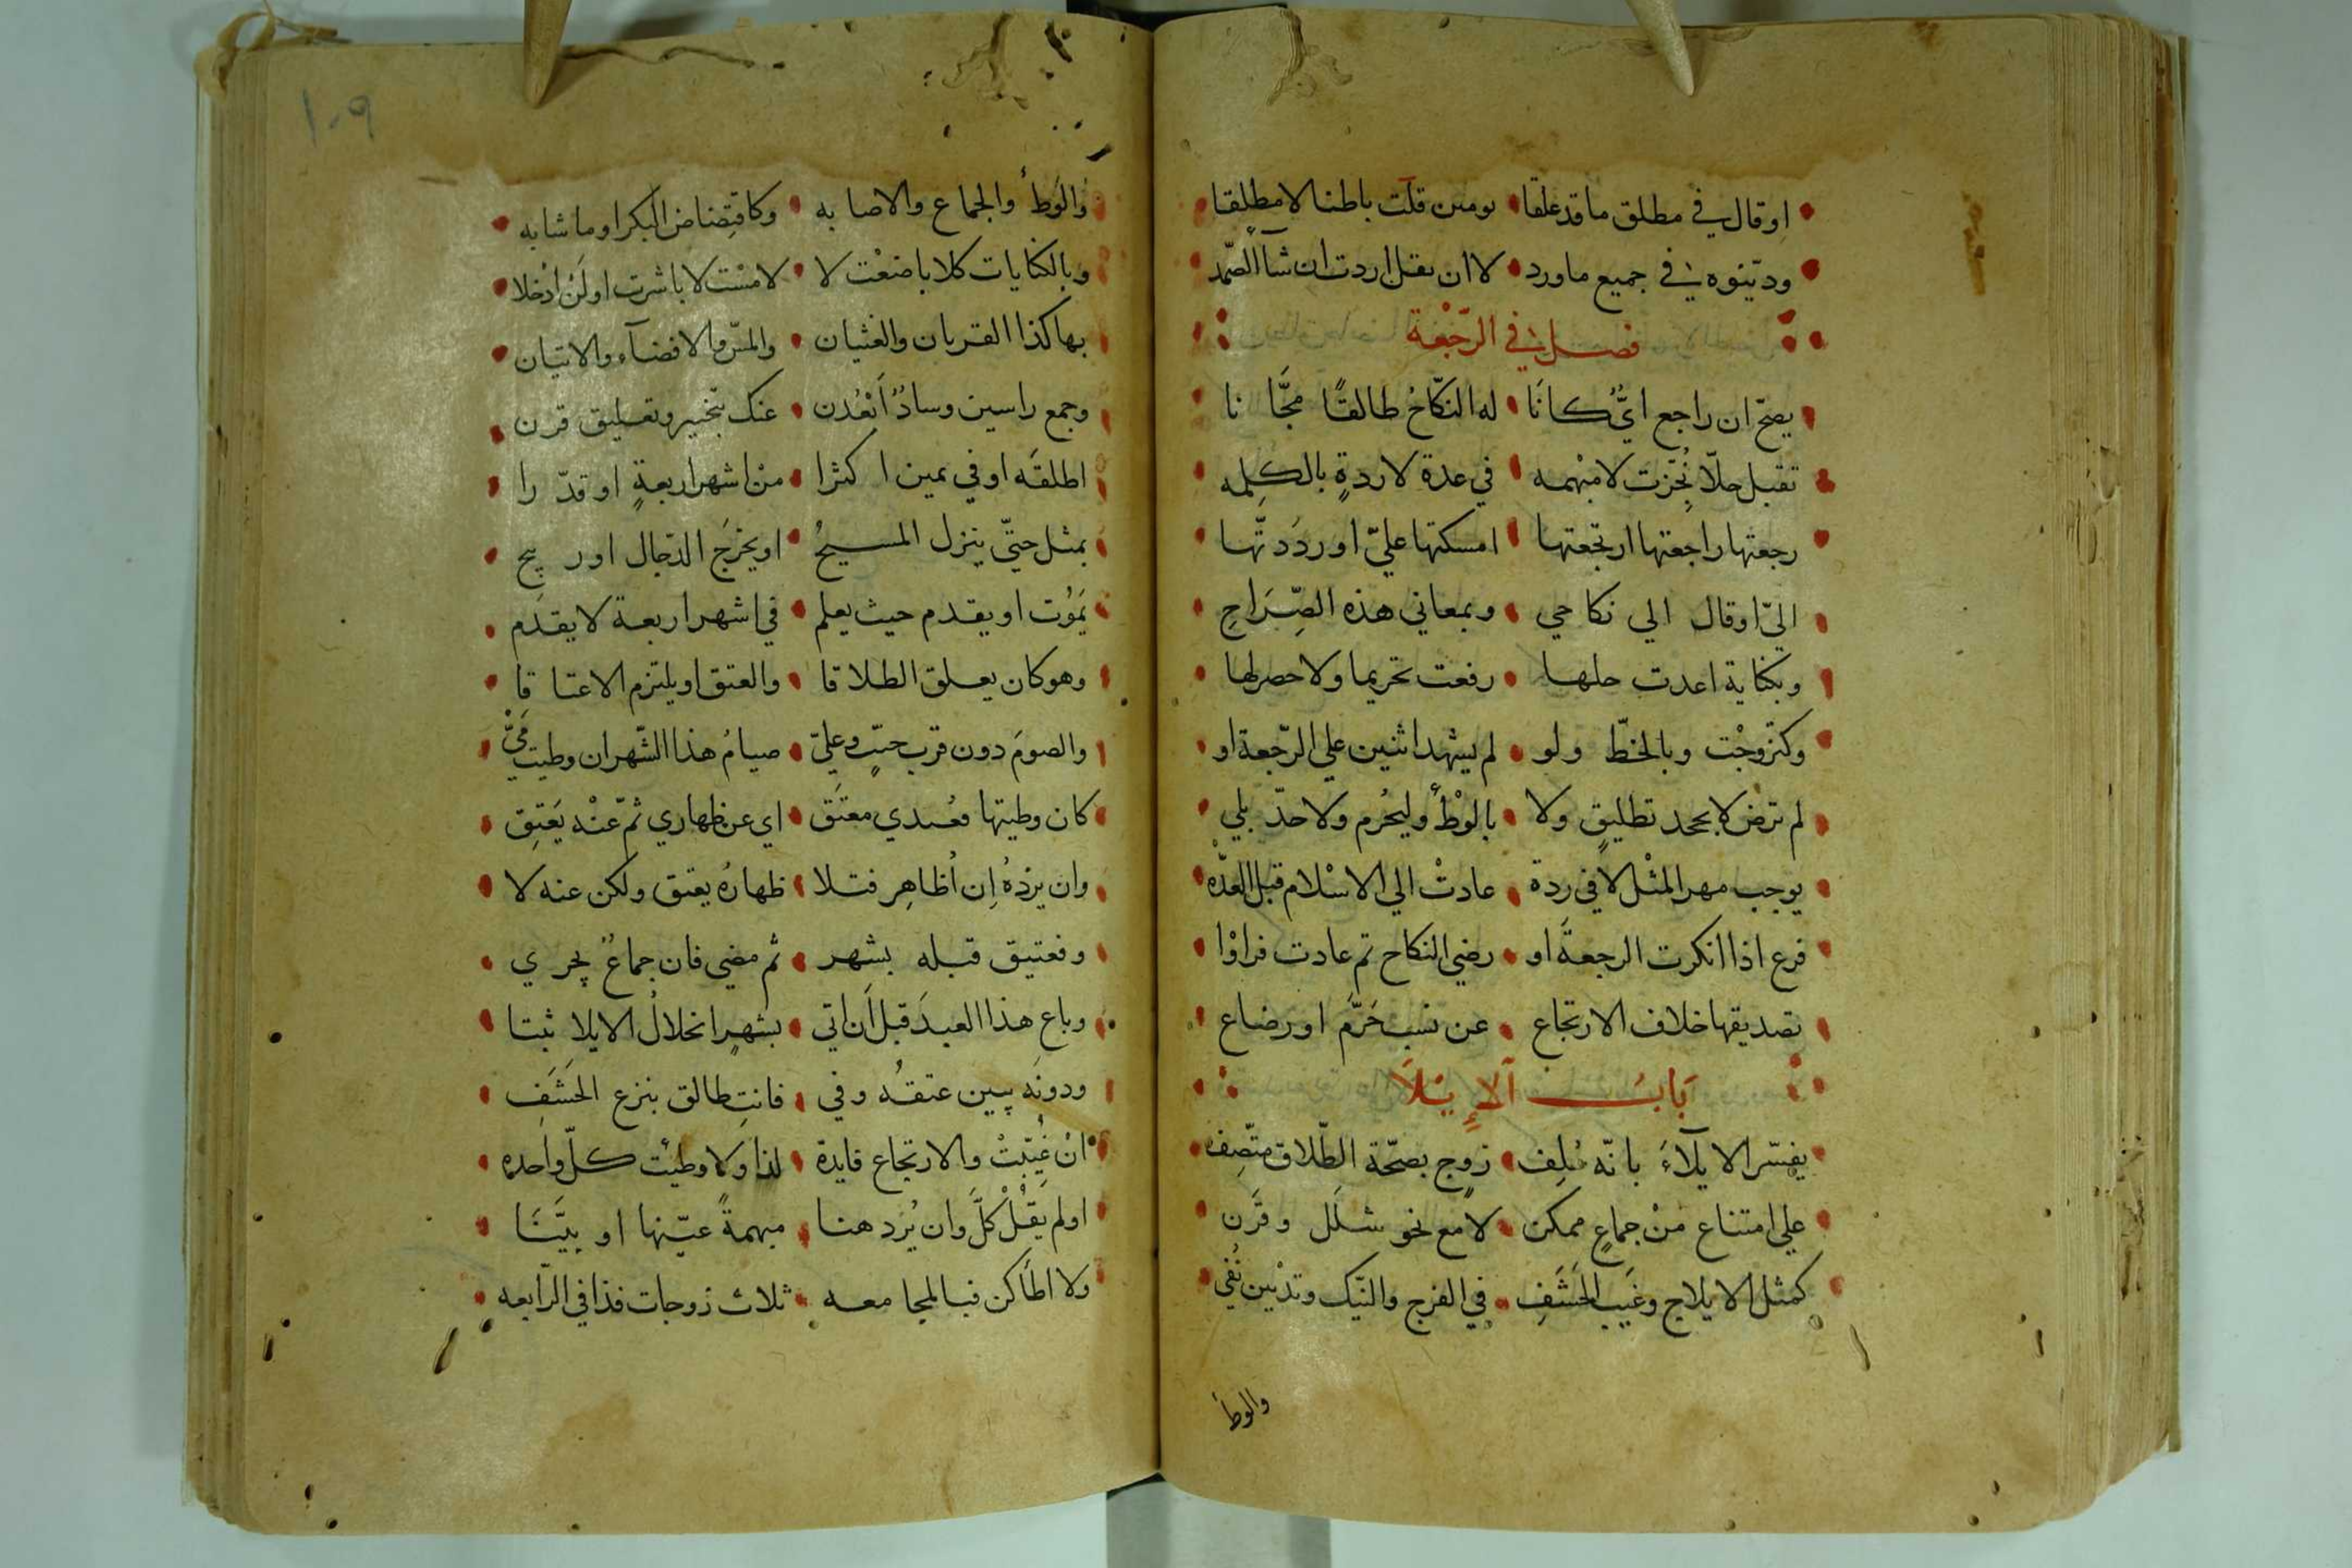 اوقال في مطلق ما قد علقا • يومين قلت باطنا لا مطلقا
وديّنوه في جميع ما ورد • لا ان يقل اردت ان شاء الصّمد
فصل في الرّجْعة
يصحّ ان راجع ايٌّ كانَا • له النّكاحُ طالقًا مجَّانا
تقبل حلّا نُجّزت لا مبْهمه • في عدة لا ردةٍ بالكلِمه
رجعتها راجعتها ارتجعتها • امسكتها عليّ او رددتّها
اليّ او قال الي نكاحي • وبمعاني هذه الصِّرَاحِ
وبكناية اعدت حلها • رفعت تحريما ولا حصر لها
وكتزوجْت وبالخطّ ولو • لم يشهد اثنين علي الرّجعة او
لم ترض لا بجحد تطليقٍ ولا • بالوطْءِ وليحُرم ولا حدّ بلي
يوجب مهر المثْل لا في ردة • عادتْ الي الاسْلام قبل العدّه
فرع اذا انكرت الرجعةَ او • رضي النكاح ثم عادت فراوْا
تصديقها خلاف الارتجاع • عن نسب حَرَّم او رضاع
بَابُ الإِيلَا
يفسّر الايلآءَ بانّه حلِف • زوجٍ بصحّة الطّلاق متّصِف
علي امتناع منْ جماعٍ ممكن • لا مع نحو شلَل وقَرَن
كمثل الايلاج وغَيبِ الحَشَفِ • في الفرج والنّيك وتديْين نُفي
والوطأ
١٠٩
والوَطأ والجماع والاصابه • وكاقتِضاض البكر او ما شابه
وبالكنايات كلا باضعْت لا • لامسْت لا باشرت او لَنْ ادْخلا
بها كذا القربان والغشيان • والمسّ والافضآء والاتيان
وجمع راسين وسادٌ اَبْعُدن • عنك بتخيير وتعليق قرن
اطلقَه او في يمين اكثرا • منْ اشهر اربعةٍ او قدّرا
بمثل حتّي ينزل المسيحُ • او يخرجَ الدّجال او ريح
يَمُوت او يقدم حيث يعلم • في اشهر اربعة لا يقدَم
وهو كان يعلق الطلاقا • والعتق او يلتزم الاعتاقا
والصومَ دون قرب حبٍّ وعليّ • صيامُ هذا الشّهر ان وطيت مَيّْ
كان وطيتها فعبدي معتَق • اي عن ظهاري ثمّ عنْه يَعتِق
وان يزدهُ اِن اُظاهِر فتلا • ظهارُه يعتق ولكن عنه لا
وفعتيق قبله بشهر • ثم مضي فان جماعٌ يجري
وباع هذا العبدَ قبل اَن اتي • بشهرٍ انحلالُ الايلا ثبتا
ودونه يبين عتقُه وفي • فانتِ طالق بنزع الحَشَفِ
انْ غُيّبَتْ والارتجاع فايدة • لذا ولا وطيْت كلّ واحده
اولم يَقُلْ كلَّ وان يُرد هنا • مبهمةً عيّنها او بيَّنَا
ولا اطأكن فبالمجامعه • ثلاث زوجات فذا في الرّابعه